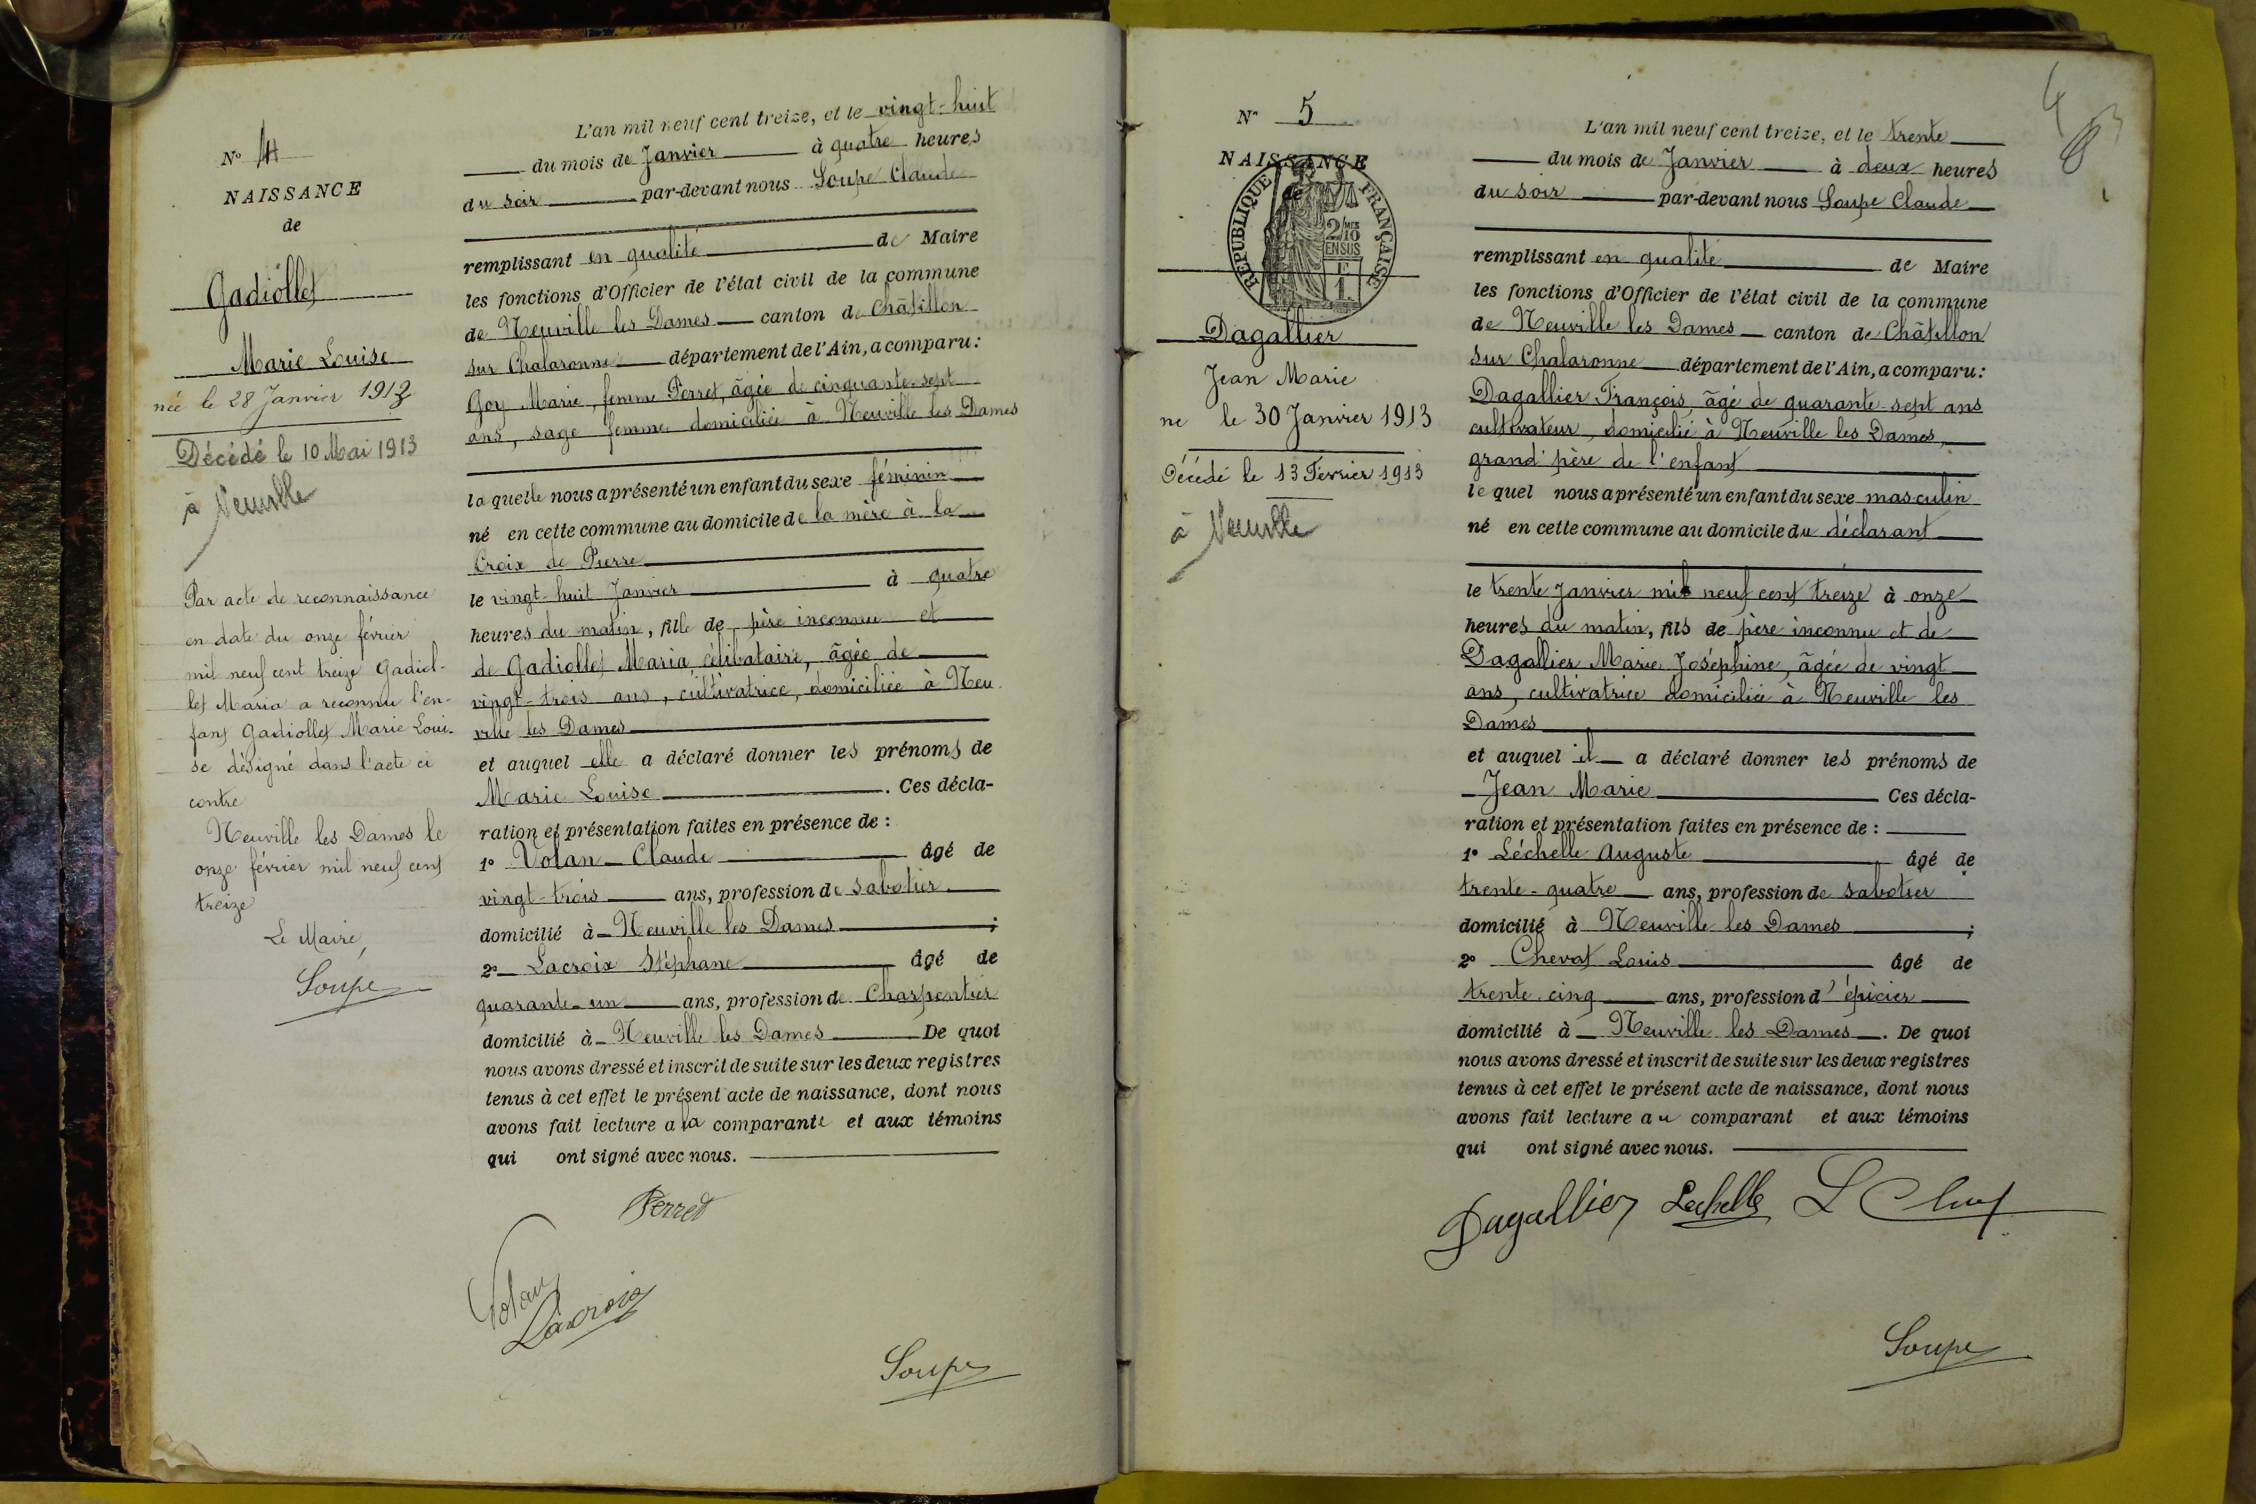 N° 4
NAISSANCE
de
Gadiollet
Marie Louise
née le 28 Janvier 1913
Décédé le 10 Mai 1913
à Neuville
Par acte de reconnaissance
en date du onze février
mil neuf cent treize Gadiol-
let Maria a reconnu l'en-
fant Gadiollet Marie Loui-
se désigné dans l'acte ci
contre
Neuville les Dames le
onze février mil neuf cent
treize
Le Maire,
Soupe
L'an mil neuf cent treize, et le vingt-huit
du mois de Janvier à quatre heures
du soir par-devant nous Soupe Claude
remplissant en qualité de Maire
les fonctions d'Officier de l'état civil de la commune
de Neuville les Dames canton de Châtillon
sur Chalaronne département de l'Ain, a comparu :
Goy Marie, femme Perret, âgée de cinquante-sept
ans, sage femme domiciliée à Neuville les Dames
la quelle nous a présenté un enfant du sexe féminin
né en cette commune au domicile de la mère à la
Croix de Pierre
le vingt-huit Janvier à quatre
heures du matin, fille de père inconnu et
de Gadiollet Maria célibataire, âgée de
vingt-trois ans, cultivatrice, domiciliée à Neu
ville les Dames
et auquel elle a déclaré donner les prénoms de
Marie Louise . Ces décla-
ration et présentation faites en présence de :
1° Volan Claude âgé de
vingt-trois ans, profession de sabotier
domicilié à Neuville les Dames ;
2° Lacroix Stéphane âgé de
quarante-un ans, profession de Charpentier
domicilié à Neuville les Dames De quoi
nous avons dressé et inscrit de suite sur les deux registres
tenus à cet effet le présent acte de naissance, dont nous
avons fait lecture a la comparante et aux témoins
qui ont signé avec nous.
Perret
Volan
Lacroix
Soupe
4
N° 5
NAISSANCE
de
REPUBLIQUE FRANÇAISE
2/10
EN SUS
Dagallier
Jean Marie
ne le 30 Janvier 1913
Décédé le 13 Février 1913
à Neuville
L'an mil neuf cent treize, et le trente
du mois de Janvier à deux heures
du soir par-devant nous Soupe Claude
remplissant en qualité de Maire
les fonctions d'Officier de l'état civil de la commune
de Neuville les Dames canton de Châtillon
sur Chalaronne département de l'Ain, a comparu :
Dagallier François, âgé de quarante-sept ans
cultivateur, domicilié à Neuville les Dames,
grand'père de l'enfant
le quel nous a présenté un enfant du sexe masculin
né en cette commune au domicile du déclarant
le trente Janvier mil neuf cent treize à onze
heures du matin, fils de père inconnu et de
Dagallier Marie Joséphine, âgée de vingt
ans, cultivatrice domiciliée à Neuville les
Dames
et auquel il a déclaré donner les prénoms de
Jean Marie Ces décla-
ration et présentation faites en présence de :
1° Léchelle Auguste âgé de
trente-quatre ans, profession de sabotier
domicilié à Neuville les Dames ;
2° Chevat Louis âgé de
trente cinq ans, profession d'épicier
domicilié à Neuville les Dames . De quoi
nous avons dressé et inscrit de suite sur les deux registres
tenus à cet effet le présent acte de naissance, dont nous
avons fait lecture au comparant et aux témoins
qui ont signé avec nous.
Dagallier Lechelle L Chevat
Soupe